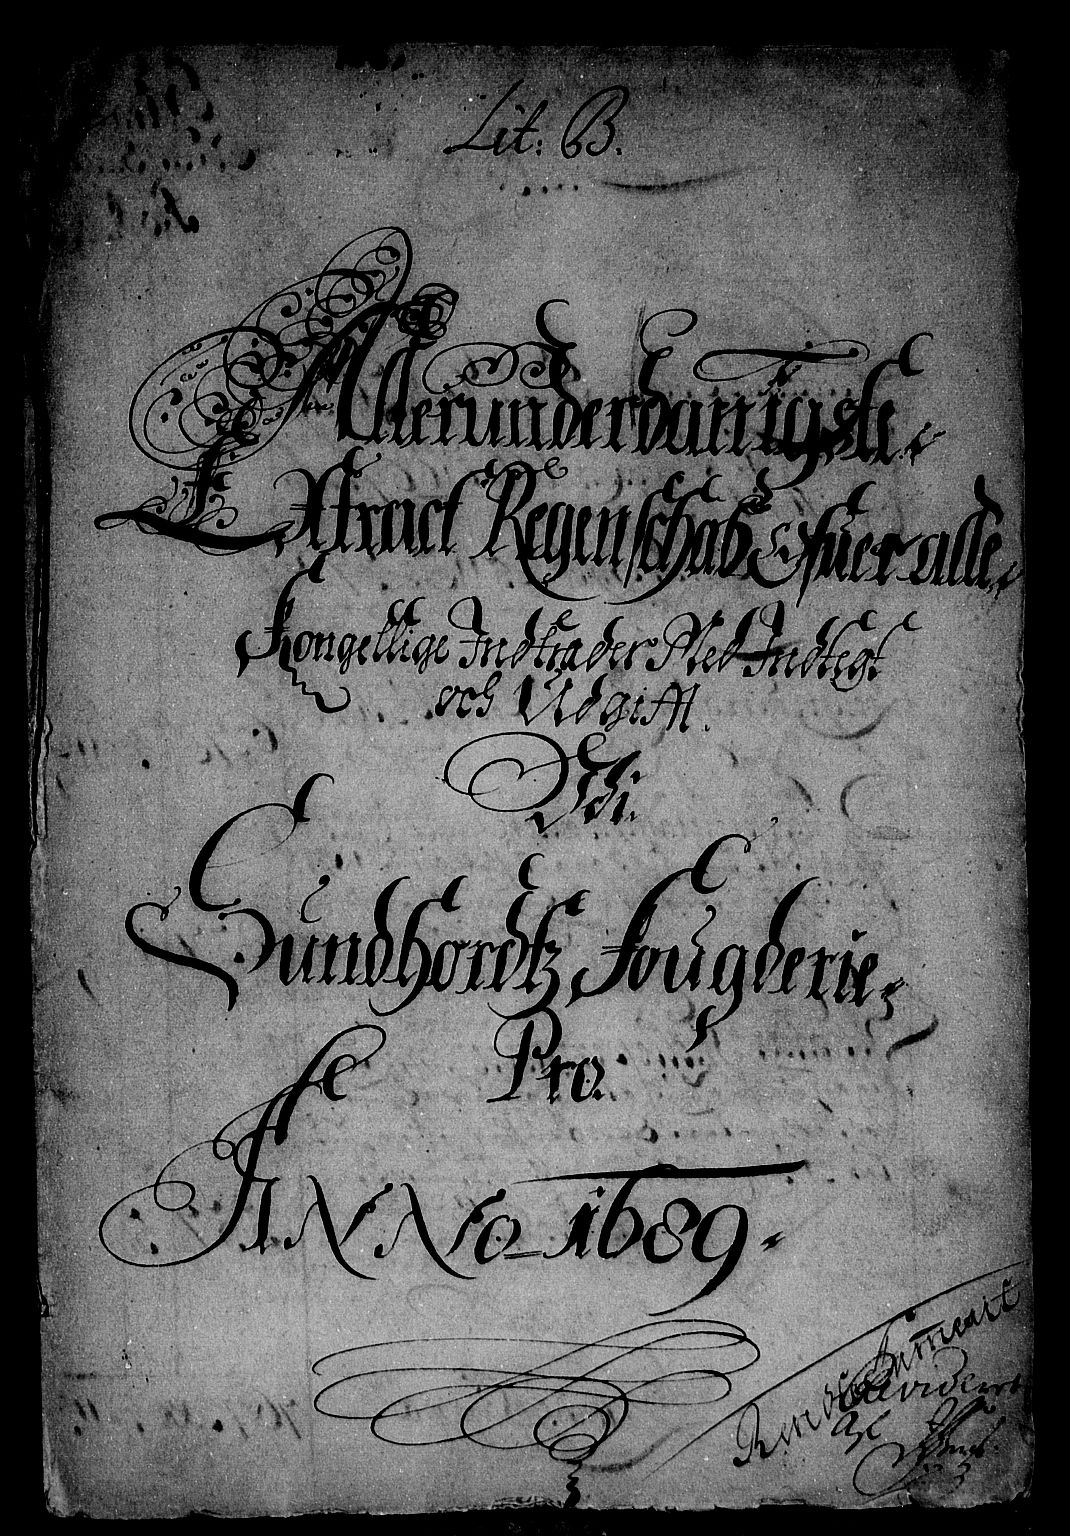 Lit: B.
Allerunderdanigste
Extract Regenschab ofuer alle
Kongellige Indtrader Med Indtegt
och Udgifft.
Udi
Sundhordtz Fougderie
Pro.
ANNo 1689.